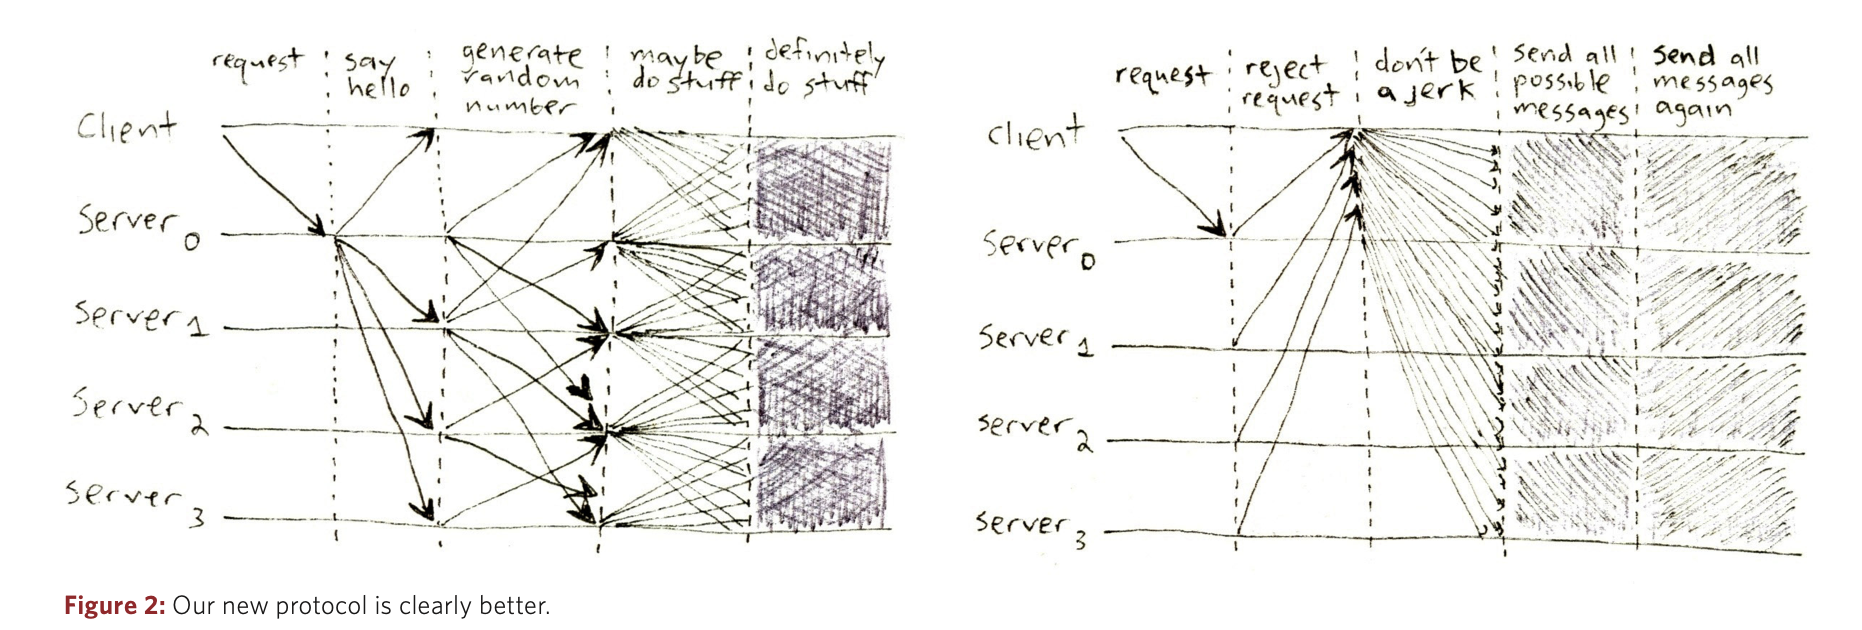 request
say
hello
generate
random
number
maybe
do stuff
definitely
do stuff
Client
Server 0
Server 1
Server 2
Server 3
request
reject
request
don't be
a jerk
send all
possible
messages
send all
messages
again
client
server 0
server 1
server 2
server 3
Figure 2: Our new protocol is clearly better.